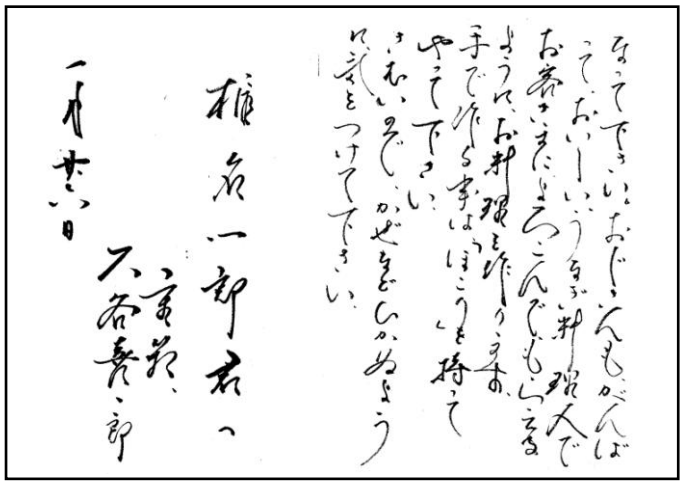 なって下さい。おじさんも、がんば
って、おいしい、うなぎ料理人で
お客さまによろこんでもらえる
ように、お料理を作ります。
手で作る事は「ほこり」を持って
やって下さい。
さむいので、かぜなどひかぬよう
に気をつけて下さい。
椎名一郎君へ
大谷喜一郎
一月廿六日